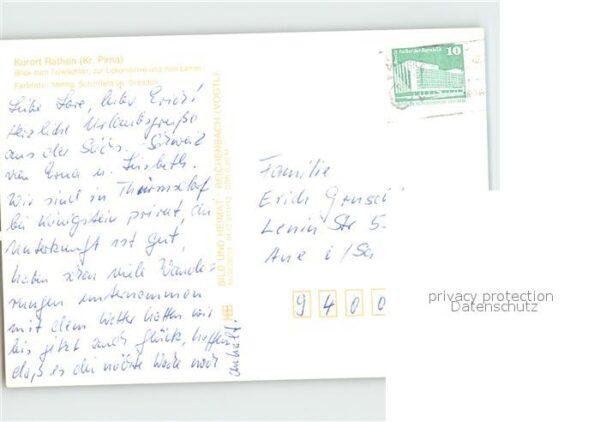 Kurort Rathen (Kr. Pirna)
Blick zum Talwächter, zur Lokomotive und zum Lamm
Farbfoto: Dresden
Liebe Lore, lieber Erich!
Herzliche Urlaubsgrüße
aus der Sächs. Schweiz
von Erna u. Lisbeth.
Wir sind in Thürmsdorf
bei Königstein privat, die
Unterkunft ist gut,
haben schon viele Wande-
rungen unternommen
mit dem Wetter hatten wir
bis jetzt auch Glück, hoffen
daß es die nächste Woche noch
anhält.
BILD UND HEIMAT REICHENBACH (VOGTL)
Palast der Republik 10
Familie
Erich
Lenin Str 5
Aue i/Sa
9400
privacy protection
Datenschutz